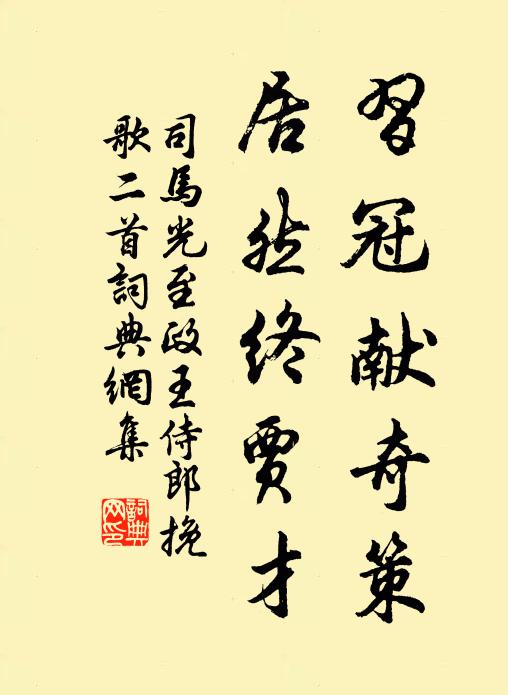 習冠献奇策
居然終賈才
司馬光至政王侍郎挽
歌二首詞典網集
詞典网印